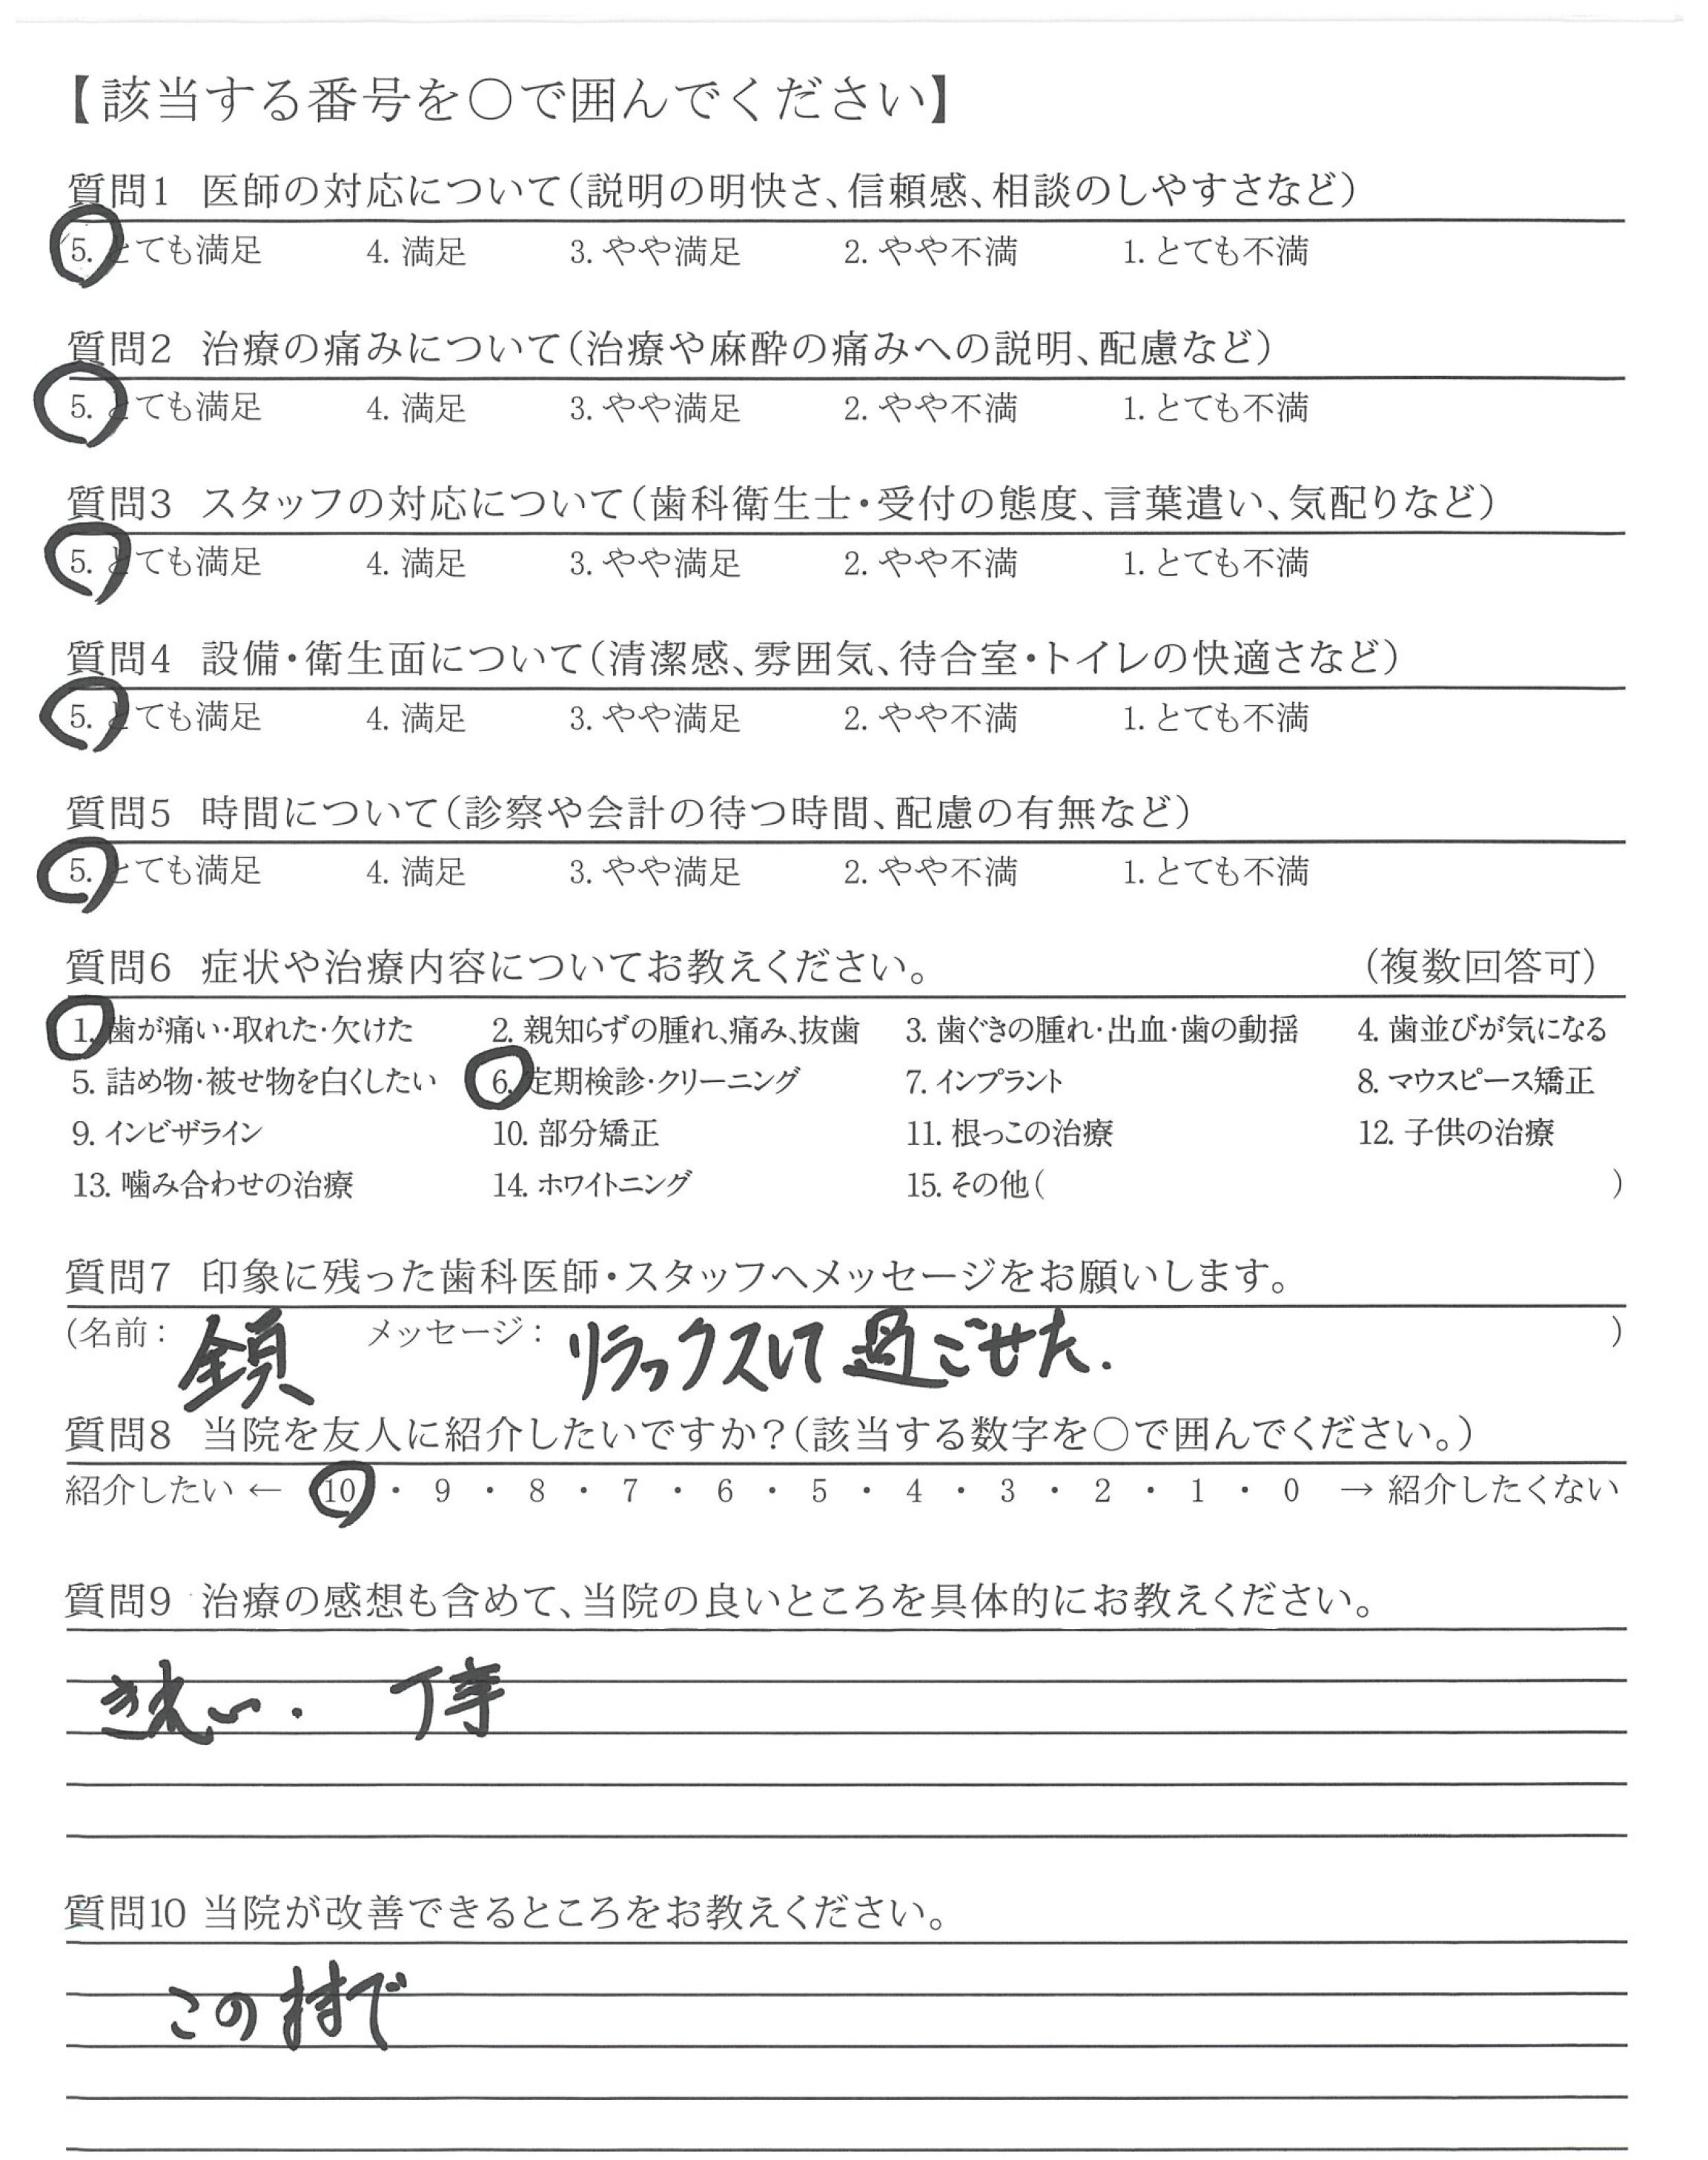 【該当する番号を○で囲んでください】
質問1 医師の対応について(説明の明快さ、信頼感、相談のしやすさなど)
5. とても満足 4. 満足 3. やや満足 2. やや不満 1. とても不満
質問2 治療の痛みについて(治療や麻酔の痛みへの説明、配慮など)
5. とても満足 4. 満足 3. やや満足 2. やや不満 1. とても不満
質問3 スタッフの対応について(歯科衛生士・受付の態度、言葉遣い、気配りなど)
5. とても満足 4. 満足 3. やや満足 2. やや不満 1. とても不満
質問4 設備・衛生面について(清潔感、雰囲気、待合室・トイレの快適さなど)
5. とても満足 4. 満足 3. やや満足 2. やや不満 1. とても不満
質問5 時間について(診察や会計の待つ時間、配慮の有無など)
5. とても満足 4. 満足 3. やや満足 2. やや不満 1. とても不満
質問6 症状や治療内容についてお教えください。 (複数回答可)
1. 歯が痛い・取れた・欠けた 2. 親知らずの腫れ、痛み、抜歯 3. 歯ぐきの腫れ・出血・歯の動揺 4. 歯並びが気になる
5. 詰め物・被せ物を白くしたい 6. 定期検診・クリーニング 7. インプラント 8. マウスピース矯正
9. インビザライン 10. 部分矯正 11. 根っこの治療 12. 子供の治療
13. 噛み合わせの治療 14. ホワイトニング 15. その他( )
質問7 印象に残った歯科医師・スタッフへメッセージをお願いします。
(名前: メッセージ: リラックスして過ごせた. )
質問8 当院を友人に紹介したいですか?(該当する数字を○で囲んでください。)
紹介したい ← 10 ・ 9 ・ 8 ・ 7 ・ 6 ・ 5 ・ 4 ・ 3 ・ 2 ・ 1 ・ 0 → 紹介したくない
質問9 治療の感想も含めて、当院の良いところを具体的にお教えください。
きれい. 丁寧
質問10 当院が改善できるところをお教えください。
この